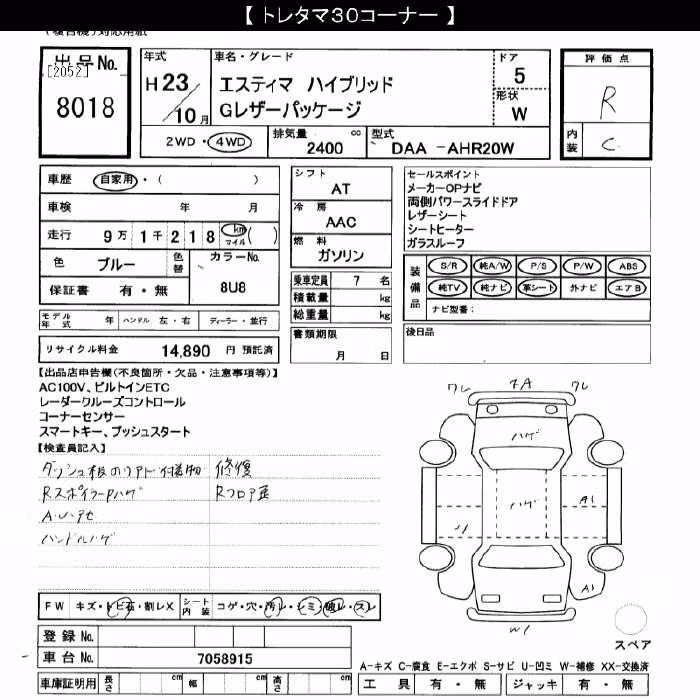 【 トレタマ30コーナー 】
(複合機)対応用紙
出品No.
[2052]
8018
年式
H 23/10月
車名・グレード
エスティマ ハイブリッド
Gレザーパッケージ
ドア
5
形状
W
2WD・4WD
排気量 cc
2400
型式
DAA -AHR20W
評価点
R
内装
C
車歴 自家用・( )
車検 年 月
走行 9万1千218 km マイル ( )
色 ブルー 色替 カラーNo. 8U8
保証書 有・無
シフト
AT
冷房
AAC
燃料
ガソリン
乗車定員 7 名
積載量 kg
総重量 kg
書類期限
月 日
セールスポイント
メーカーOPナビ
両側パワースライドドア
レザーシート
シートヒーター
ガラスルーフ
装備品
S/R 純A/W P/S P/W ABS
純TV 純ナビ 革シート 外ナビ エアB
ナビ型番:
後日品
モデル年式 年 ハンドル 左・右 ディーラー・並行
リサイクル料金 14,890 円 預託済
【出品店申告欄(不良箇所・欠品・注意事項等)】
AC100V、ビルトインETC
レーダークルーズコントロール
コーナーセンサー
スマートキー、プッシュスタート
【検査員記入】
修復
Rフロア歪
RスポイラーPハゲ
ハンドルハゲ
ワレ
ワレ
ハゲ
ハゲ
A1
A1
W1
FW キズ・トビ石・割レX シート内装 コゲ・穴・汚レ・シミ・破レ・スレ
登録No.
車台No. 7058915
車庫証明用 長さ cm 幅 cm 高さ cm
スペア
A-キズ C-腐食 E-エクボ S-サビ U-凹ミ W-補修 XX-交換済
工具 有・無 ジャッキ 有・無